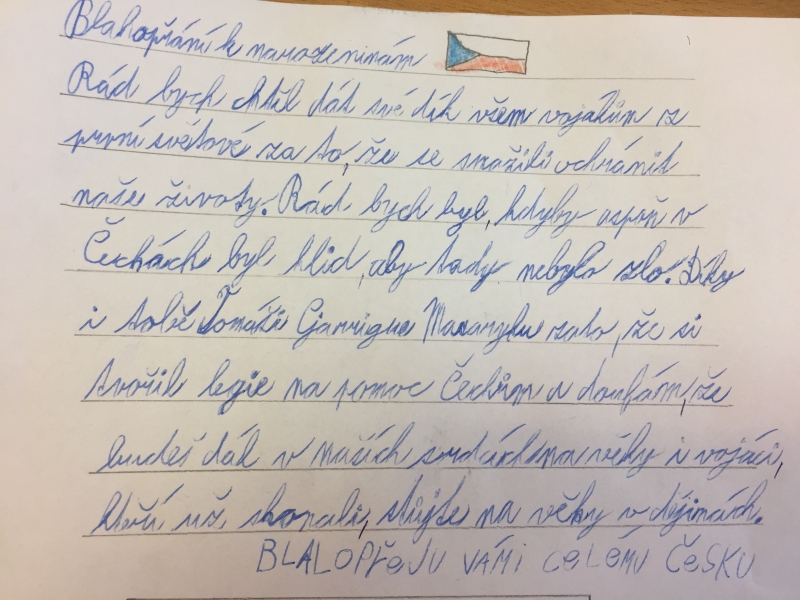 Blahopřání k narozeninám
Rád bych chtěl dát své dík všem vojákům z
první světové za to, že se snažili ochránit
naše životy. Rád bych byl, kdyby aspoň v
Čechách byl klid, aby tady nebylo zlo. Díky
i tobě Tomáši Garrigue Masaryku za to, že si
tvořil legie na pomoc Čechům a doufám, že
budeš dál v našich srdcích na věky i vojáci,
kteří už skonali, stůjte na věky v dějinách.
BLALOPŘEJU VÁM I CELÉMÚ ČESKU